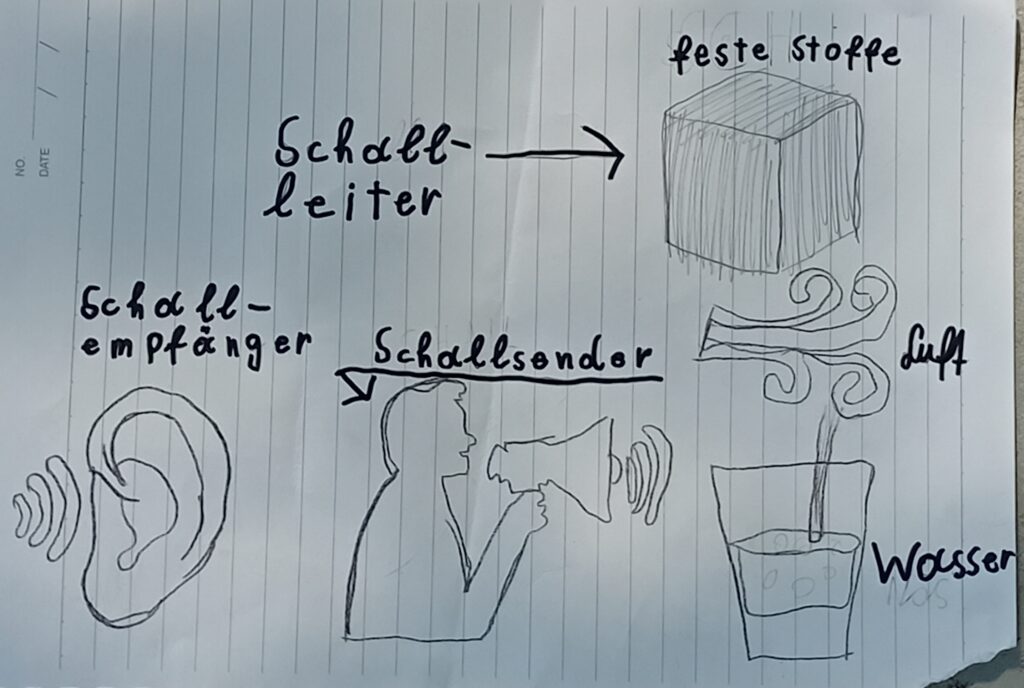 NO.
DATE / /
feste Stoffe
Schall-
leiter
Schall-
empfänger
Schallsender
Luft
Wasser